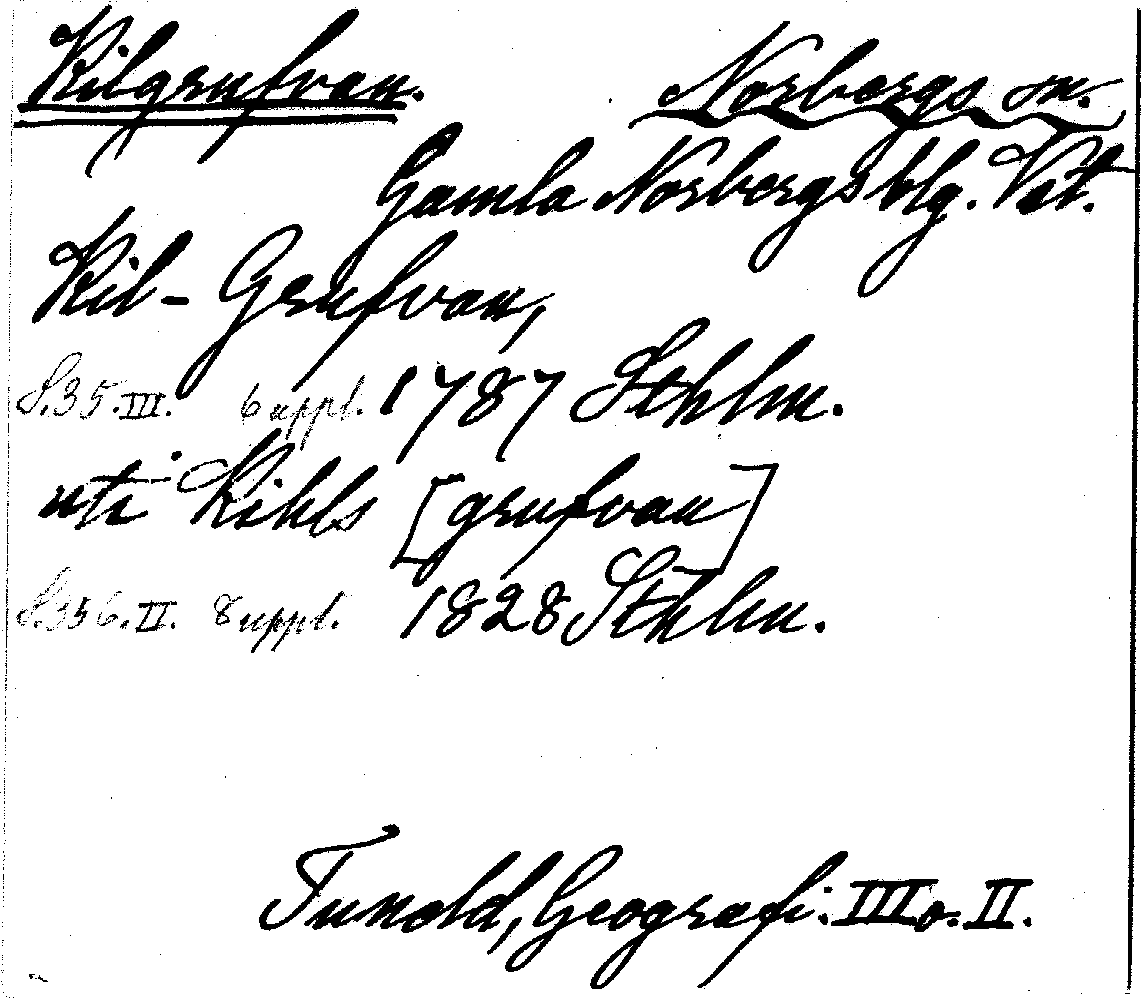 Kilgrufvan. Norbergs sn.
Gamla Norbergs blg. Vst.
Kil-Grufvan,
S. 35. III. 6 uppl. 1787 Sthlm.
uti Kihls [grufvan]
S. 356. II. 8 uppl. 1828 Sthlm.
Tunold, Geografi. III o. II.